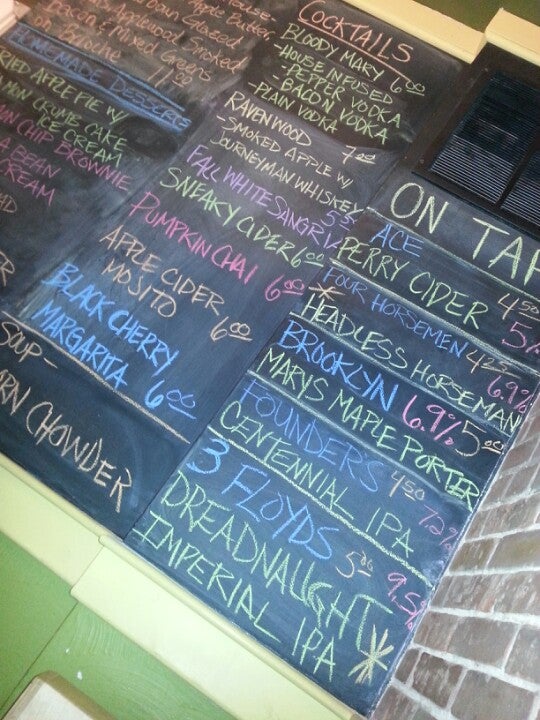 Apple Butter
Applewood Smoked
Bacon & Mixed Greens
on Brioche 11.00
HOMEMADE DESSERTS
APPLE PIE W/
CRUMB CAKE
ICE CREAM
CHIP BROWNIE
BEAN
CREAM
SOUP-
CHOWDER
COCKTAILS
BLOODY MARY 6.00
-HOUSE INFUSED
-PEPPER VODKA
-BACON VODKA
-PLAIN VODKA-
RAVENWOOD 7.00
-SMOKED APPLE W/
JOURNEYMAN WHISKEY
FALL WHITE SANGRIA
SNEAKY CIDER 6.00
PUMPKIN CHAI 6.00
APPLE CIDER
MOJITO 6.00
BLACK CHERRY
MARGARITA 6.00
ON TAP
ACE 4.50
PERRY CIDER 5%
FOUR HORSEMEN 4.25
HEADLESS HORSEMAN 6.9%
BROOKLYN 6.9% 5.00
MARYS MAPLE PORTER
FOUNDERS 4.50
CENTENNIAL IPA 7.2%
3 FLOYDS 5.00 9.5%
DREADNAUGHT
IMPERIAL IPA